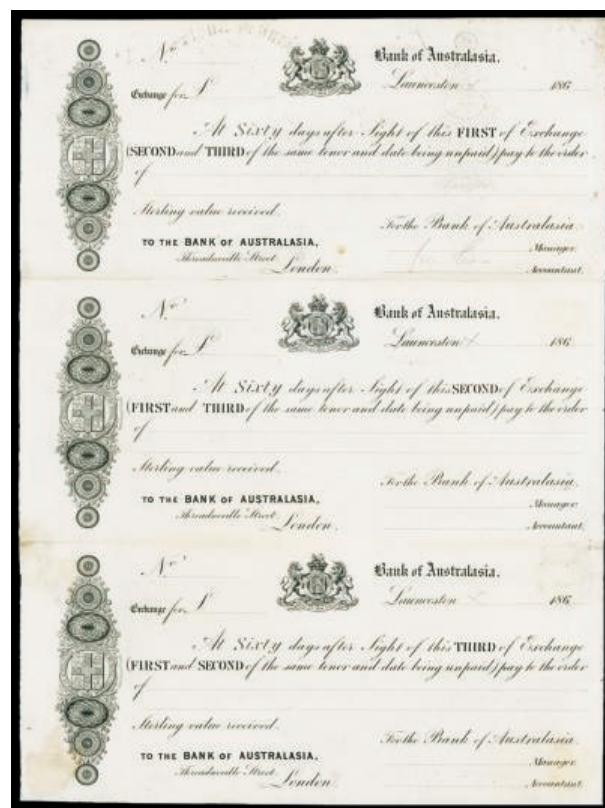 No.
Bank of Australasia.
Launceston 186
Exchange for £
At Sixty days after Sight of this FIRST of Exchange
(SECOND and THIRD of the same tenor and date being unpaid) pay to the order
of
Sterling value received.
For the Bank of Australasia.
TO THE BANK OF AUSTRALASIA,
Manager.
Threadneedle Street,
London.
Accountant.
No.
Bank of Australasia.
Launceston 186
Exchange for £
At Sixty days after Sight of this SECOND of Exchange
(FIRST and THIRD of the same tenor and date being unpaid) pay to the order
of
Sterling value received.
For the Bank of Australasia.
TO THE BANK OF AUSTRALASIA,
Manager.
Threadneedle Street,
London.
Accountant.
No.
Bank of Australasia.
Launceston 186
Exchange for £
At Sixty days after Sight of this THIRD of Exchange
(FIRST and SECOND of the same tenor and date being unpaid) pay to the order
of
Sterling value received.
For the Bank of Australasia.
TO THE BANK OF AUSTRALASIA,
Manager.
Threadneedle Street,
London.
Accountant.